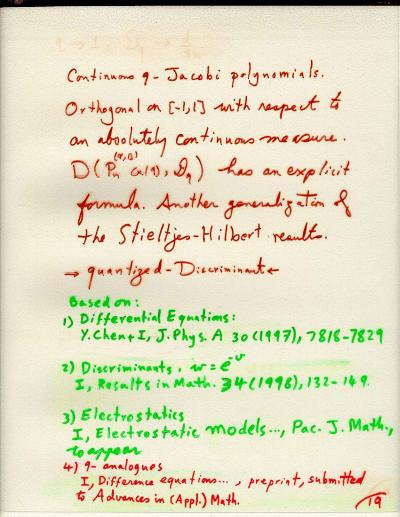 Continuous q-Jacobi polynomials.
Orthogonal on [-1,1] with respect to
an absolutely continuous measure.
D(Pₙ^(α,β)(x|q), 𝒟_q) has an explicit
formula. Another generalization of
the Stieltjes-Hilbert results.
→ quantized-Discriminant ←
Based on:
1) Differential Equations:
Y. Chen + I, J. Phys. A 30 (1997), 7818-7829
2) Discriminants, w = e^-v
I, Results in Math. 34 (1998), 132-149.
3) Electrostatics
I, Electrostatic models..., Pac. J. Math.,
to appear
4) q-analogues
I, Difference equations..., preprint, submitted
to Advances in (Appl.) Math.
19